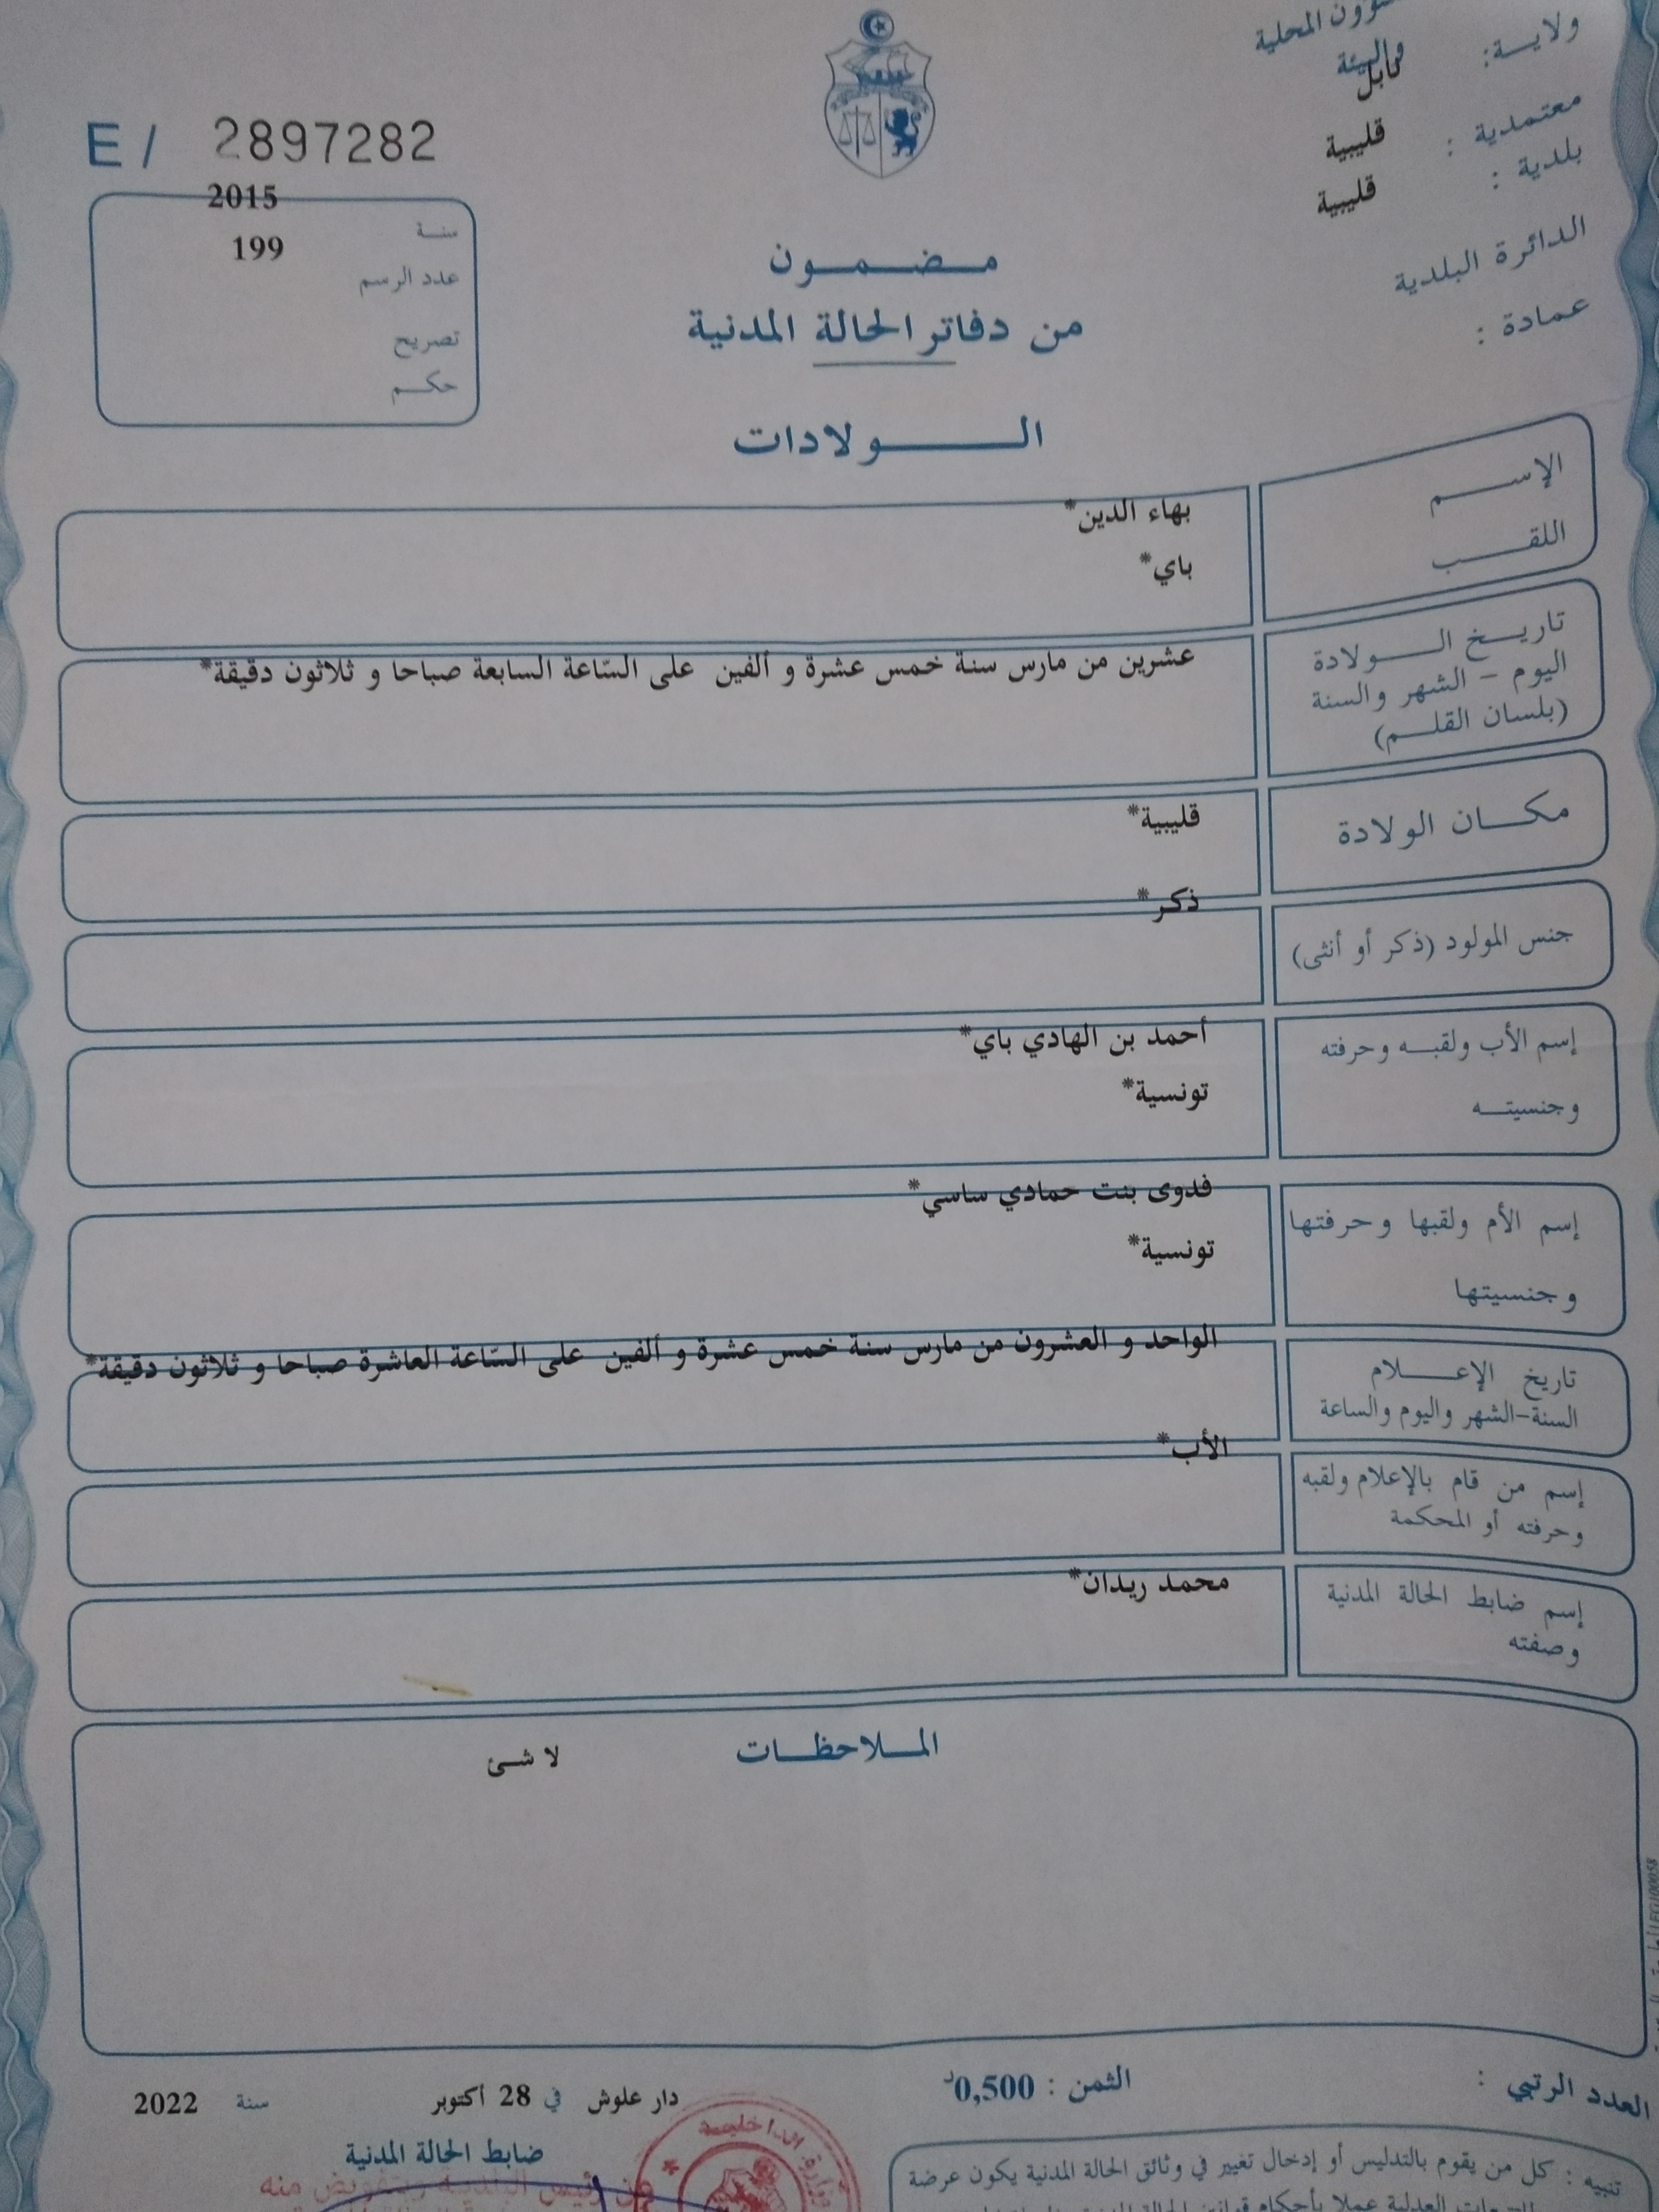 ؤون المحلية
والبيئة
ولايــة: نابل
معتمدية : قليبية
بلدية : قليبية
الدائرة البلدية
عمادة :
E / 2897282
سنـة 2015
عدد الرسم 199
تصريح
حكـم
مـضـمـون
من دفاتر الحالة المدنية
الـولادات
الإســم بهاء الدين*
اللقـب باي*
تاريـخ الـولادة
اليوم – الشهر والسنة
(بلسان القلـم)
عشرين من مارس سنة خمس عشرة و ألفين على السّاعة السابعة صباحا و ثلاثون دقيقة*
مكـان الولادة قليبية*
جنس المولود (ذكر أو أنثى) ذكر*
إسم الأب ولقبـه وحرفته أحمد بن الهادي باي*
وجنسيتـه تونسية*
إسم الأم ولقبها وحرفتها فدوى بنت حمادي ساسي*
وجنسيتها تونسية*
تاريخ الإعـلام
السنة-الشهر واليوم والساعة
الواحد و العشرون من مارس سنة خمس عشرة و ألفين على السّاعة العاشرة صباحا و ثلاثون دقيقة*
إسم من قام بالإعلام ولقبه
وحرفته أو المحكمة
الأب*
إسم ضابط الحالة المدنية
وصفته
محمد ريدان*
المـلاحظـات
لا شئ
العدد الرتبي :
الثمن : 0,500د
دار علوش في 28 أكتوبر سنة 2022
ضابط الحالة المدنية
عن رئيس البلدية وبتفويض منه
وزارة الداخلية
تنبيه : كل من يقوم بالتدليس أو إدخال تغيير في وثائق الحالة المدنية يكون عرضة